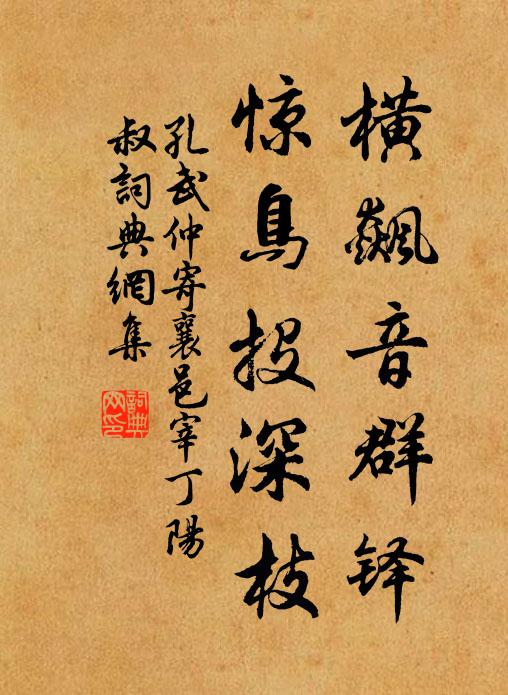 横飙音群铎
惊鸟投深枝
孔武仲寄襄邑宰丁陽
叔詞典網集
詞典
网印